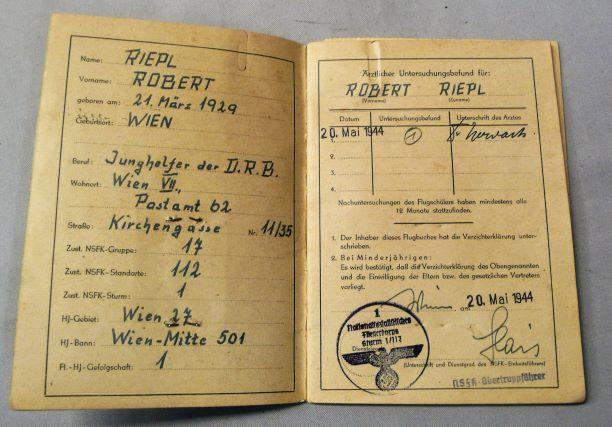 Name: RIEPL
Vorname: ROBERT
geboren am: 21. März 1929
Geburtsort: WIEN
Beruf: Junghelfer der D.R.B.
Wohnort: Wien VII.,
Postamt 62
Straße: Kirchengasse Nr. 11/35
Zust. NSFK-Gruppe: 17
Zust. NSFK-Standarte: 112
Zust. NSFK-Sturm: 1
HJ-Gebiet: Wien 27
HJ-Bann: Wien-Mitte 501
Fl.-HJ-Gefolgschaft: 1
Ärztlicher Untersuchungsbefund für:
ROBERT RIEPL
(Vorname) (Zuname)
Datum Untersuchungsbefund Unterschrift des Arztes
20. Mai 1944 1
1.
2.
3.
4.
Nachuntersuchungen des Flugschülers haben mindestens alle
12 Monate stattzufinden.
1. Der Inhaber dieses Flugbuches hat die Verzichterklärung unter-
schrieben.
2. Bei Minderjährigen:
Es wird bestätigt, daß die Verzichterklärung des Obengenannten
und die Einwilligung der Eltern bzw. des gesetzlichen Vertreters
vorliegt.
Wien, am 20. Mai 1944
1
Nationalsozialistisches
Fliegerkorps
Sturm 1/112
(Unterschrift und Dienstgrad des NSFK-Einheitsführers)
NSFK-Obertruppführer